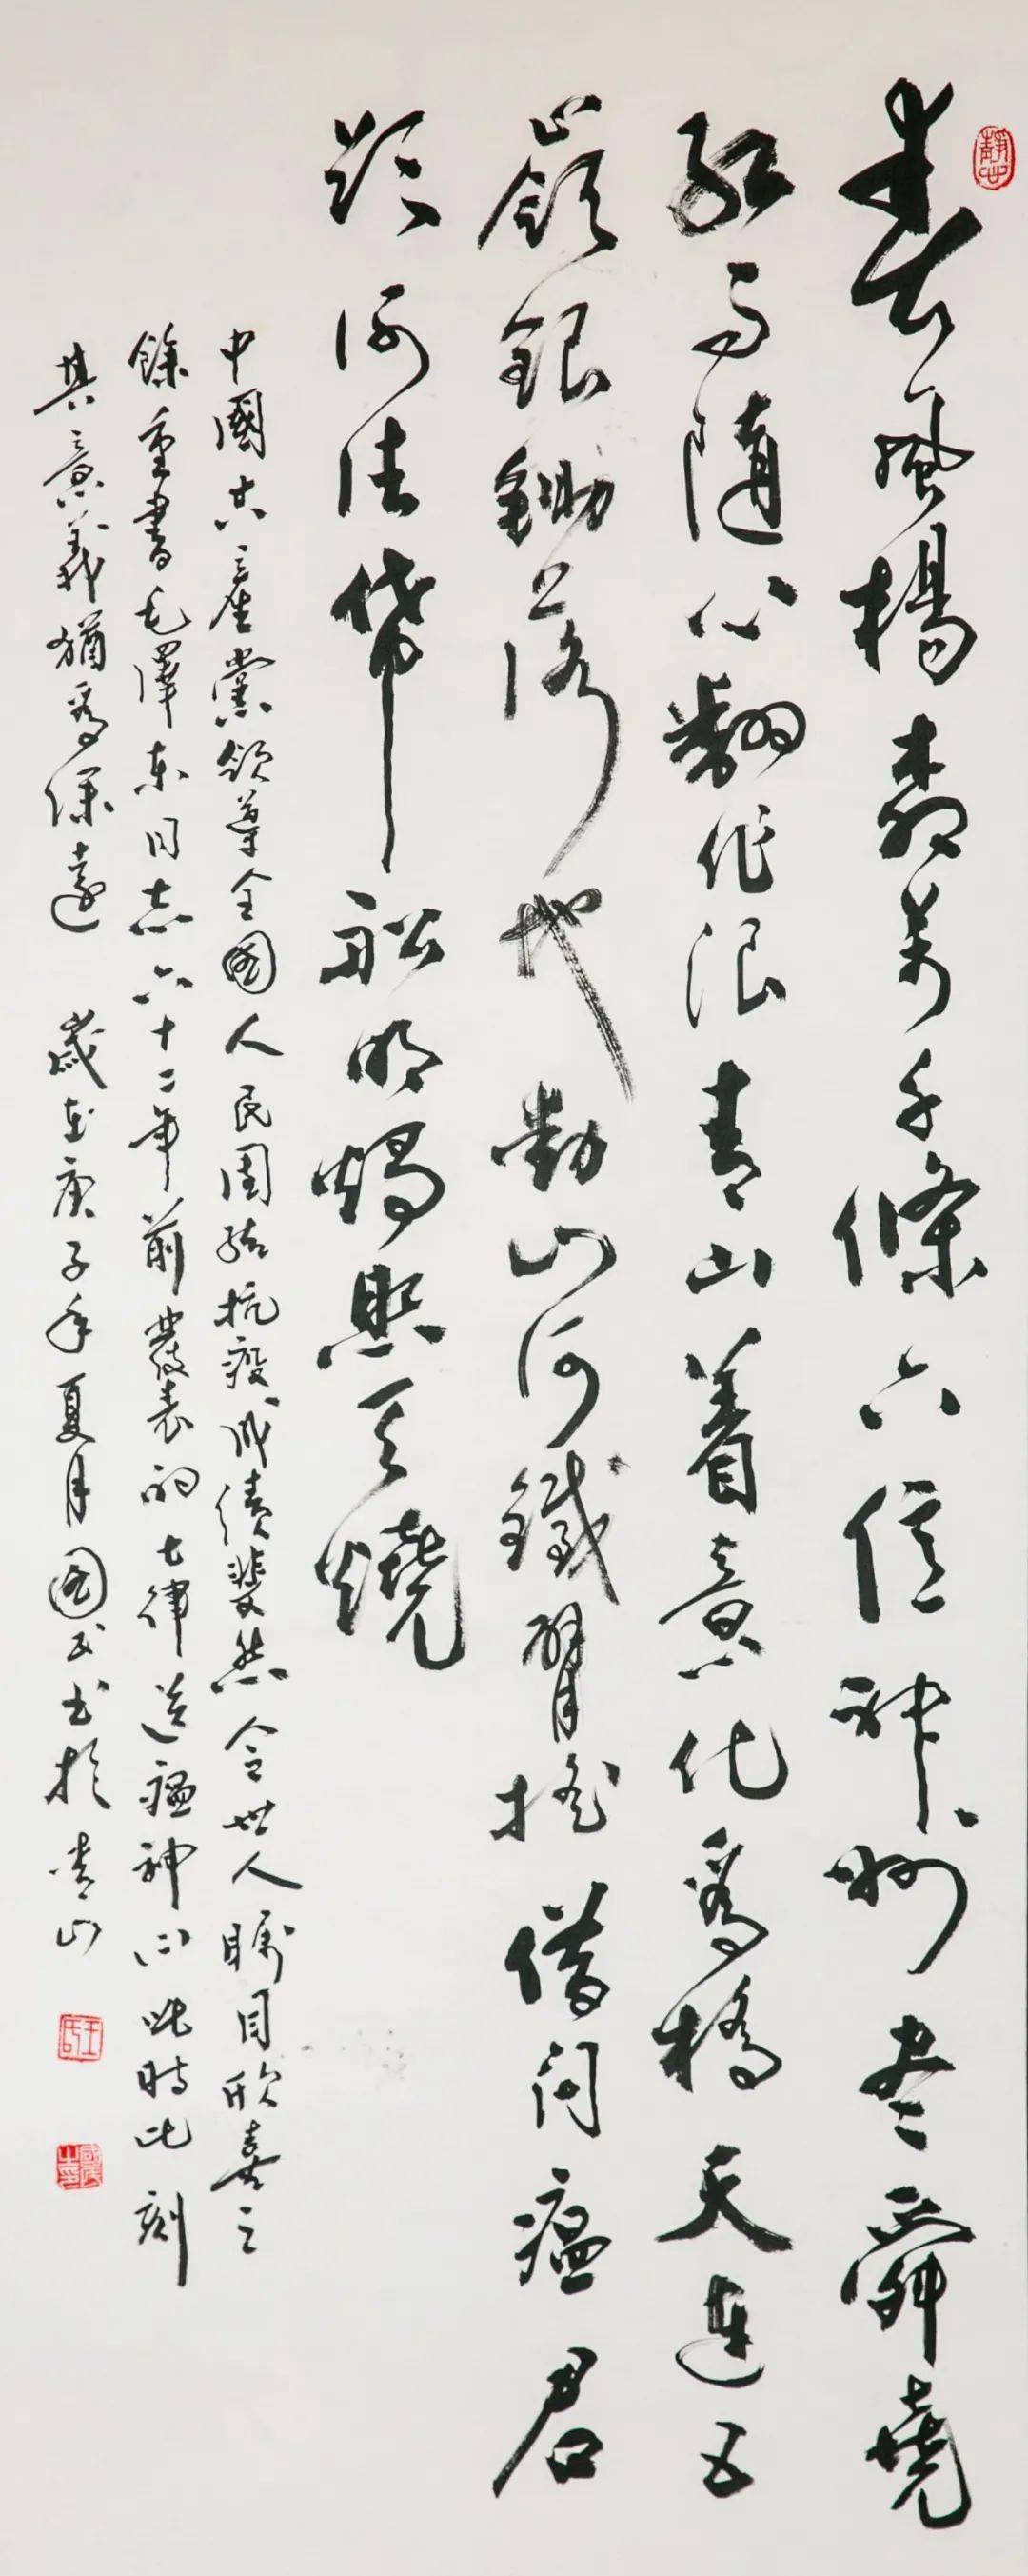 春風楊柳萬千條六億神州盡舜堯
紅雨隨心翻作浪青山着意化爲橋天連五
嶺銀鋤落地動山河鐵臂搖借問瘟君
欲何往紙船明燭照天燒
中國共產黨領導全國人民團結抗疫成績斐然令世人矚目欣喜之
餘重書毛澤東同志六十二年前發表的七律送瘟神此時此刻
其意義猶爲深遠 歲在庚子年夏月國民書於青山
王氏